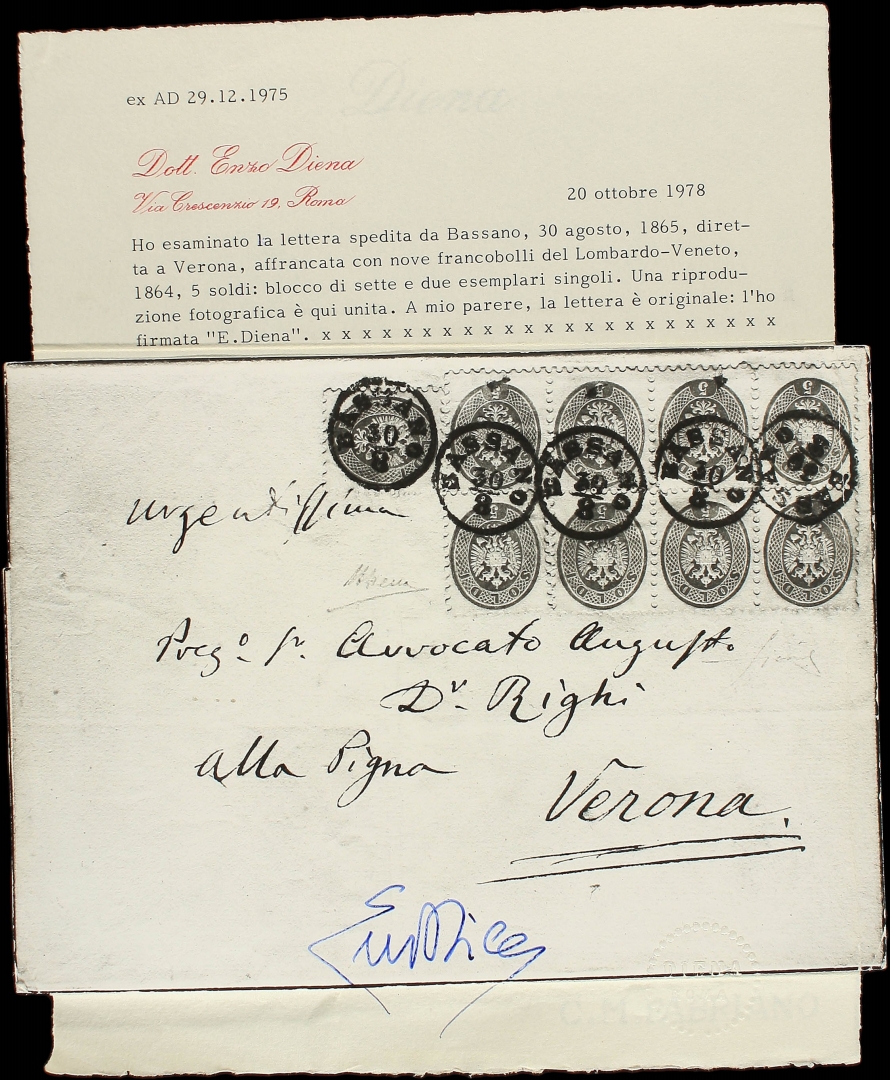 Diena
ex AD 29.12.1975
Dott. Enzo Diena
Via Crescenzio 19, Roma
20 ottobre 1978
Ho esaminato la lettera spedita da Bassano, 30 agosto, 1865, diret-
ta a Verona, affrancata con nove francobolli del Lombardo-Veneto,
1864, 5 soldi: blocco di sette e due esemplari singoli. Una riprodu-
zione fotografica è qui unita. A mio parere, la lettera è originale: l'ho
firmata "E.Diena". x x x x x x x x x x x x x x x x x x x x x x x
5 5 5 5
BASSANO 30 8 BASSANO 30 8 BASSANO 30 8 BASSANO 30 8 BASSANO 30 8
urgentissima
5 5 5 5
SOLDI SOLDI SOLDI SOLDI
Preg.o Sr. Avvocato Augusto
Dr. Righi
alla Pigna
Verona.